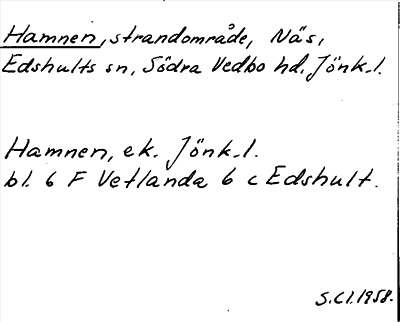 Hamnen, strandområde, Näs,
Edshults sn, Södra Vedbo hd. Jönk.l.
Hamnen, ek. Jönk.l.
bl. 6 F Vetlanda 6 c Edshult.
S.Cl.1958.